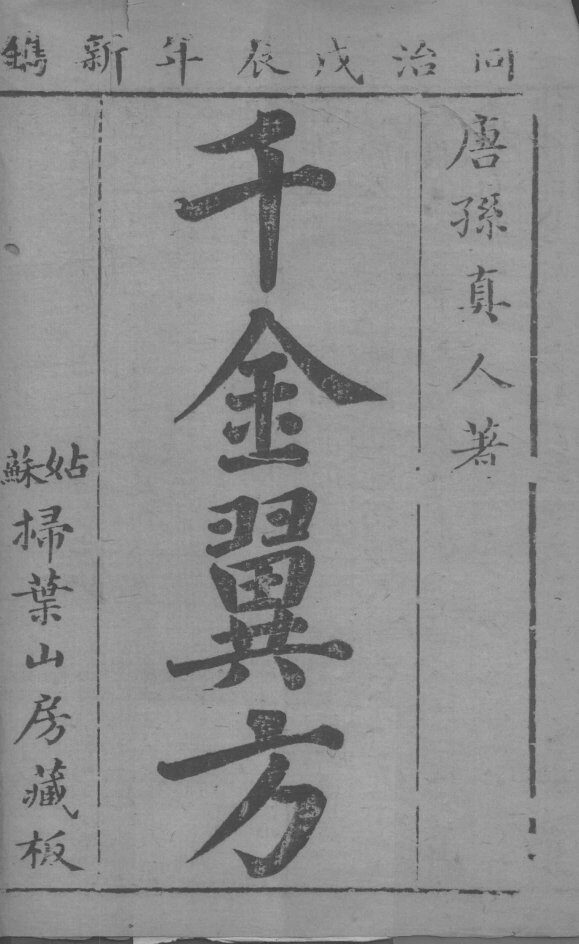 同治戊辰年新鐫
唐孫真人著
千金翼方
姑蘇掃葉山房藏板